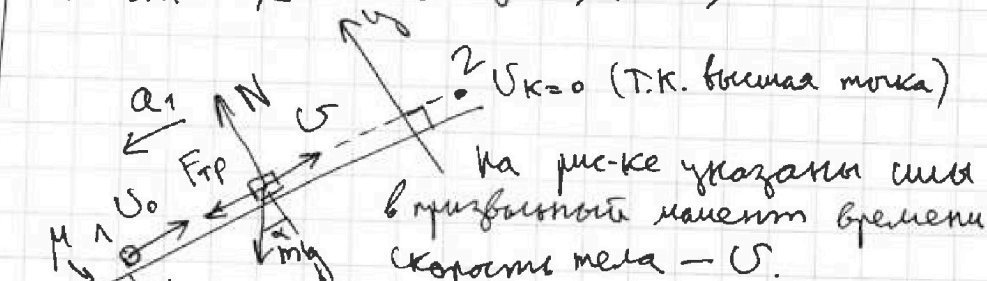 y
2 υк=0 (т.к. высшая точка)
a₁ N υ
Fтр
На рис-ке указаны силы
υ₀
в произвольный момент времени
μ 1 α mg
скорость тела — υ.